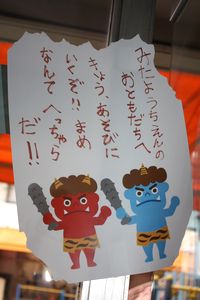 みたようちえんの
おともだちへ
きょう、あそびに
いくぞ!!まめ
なんて へっちゃら
だ!!